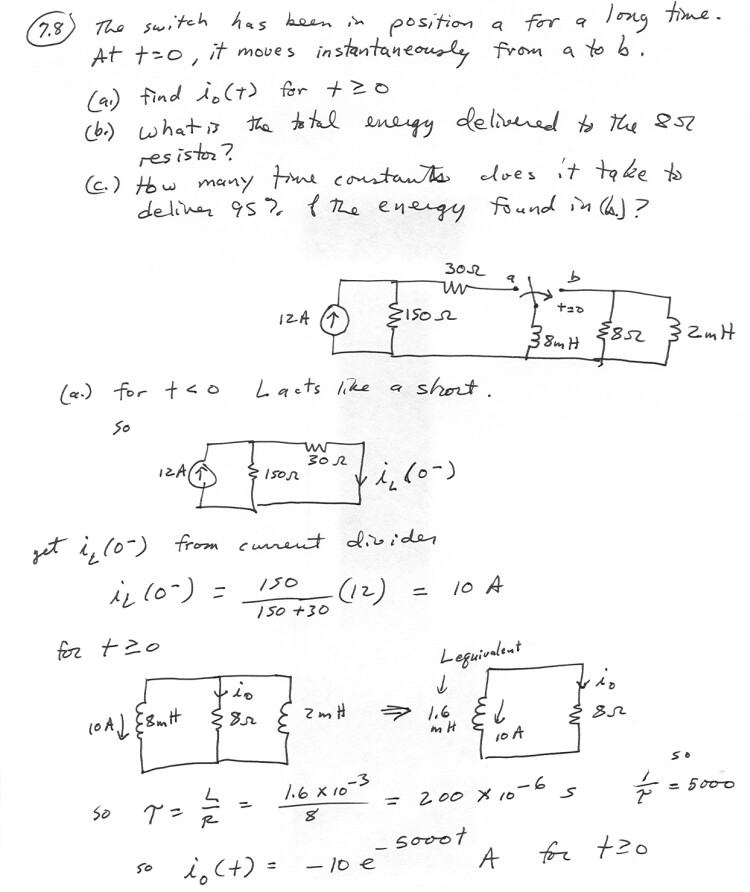 7.8 The switch has been in position a for a long time.
At t=0, it moves instantaneously from a to b.
(a.) find i₀(t) for t ≥ 0
(b.) what is the total energy delivered to the 8Ω
resistor?
(c.) How many time constants does it take to
deliver 95% of the energy found in (b.)?
30Ω a b
t=0
12A 150Ω 8mH 8Ω 2mH
(a.) for t<0 L acts like a short.
so
12A 150Ω 30Ω i_L(0-)
get i_L(0-) from current divider
i_L(0-) = 150/(150+30) (12) = 10 A
for t ≥ 0
L equivalent
10A ↓ 8mH i₀ 8Ω 2mH ⇒ 1.6 mH 10A i₀ 8Ω
so τ = L/R = 1.6 × 10⁻³/8 = 200 × 10⁻⁶ s so 1/τ = 5000
so i₀(t) = -10 e^(-5000t) A for t≥0